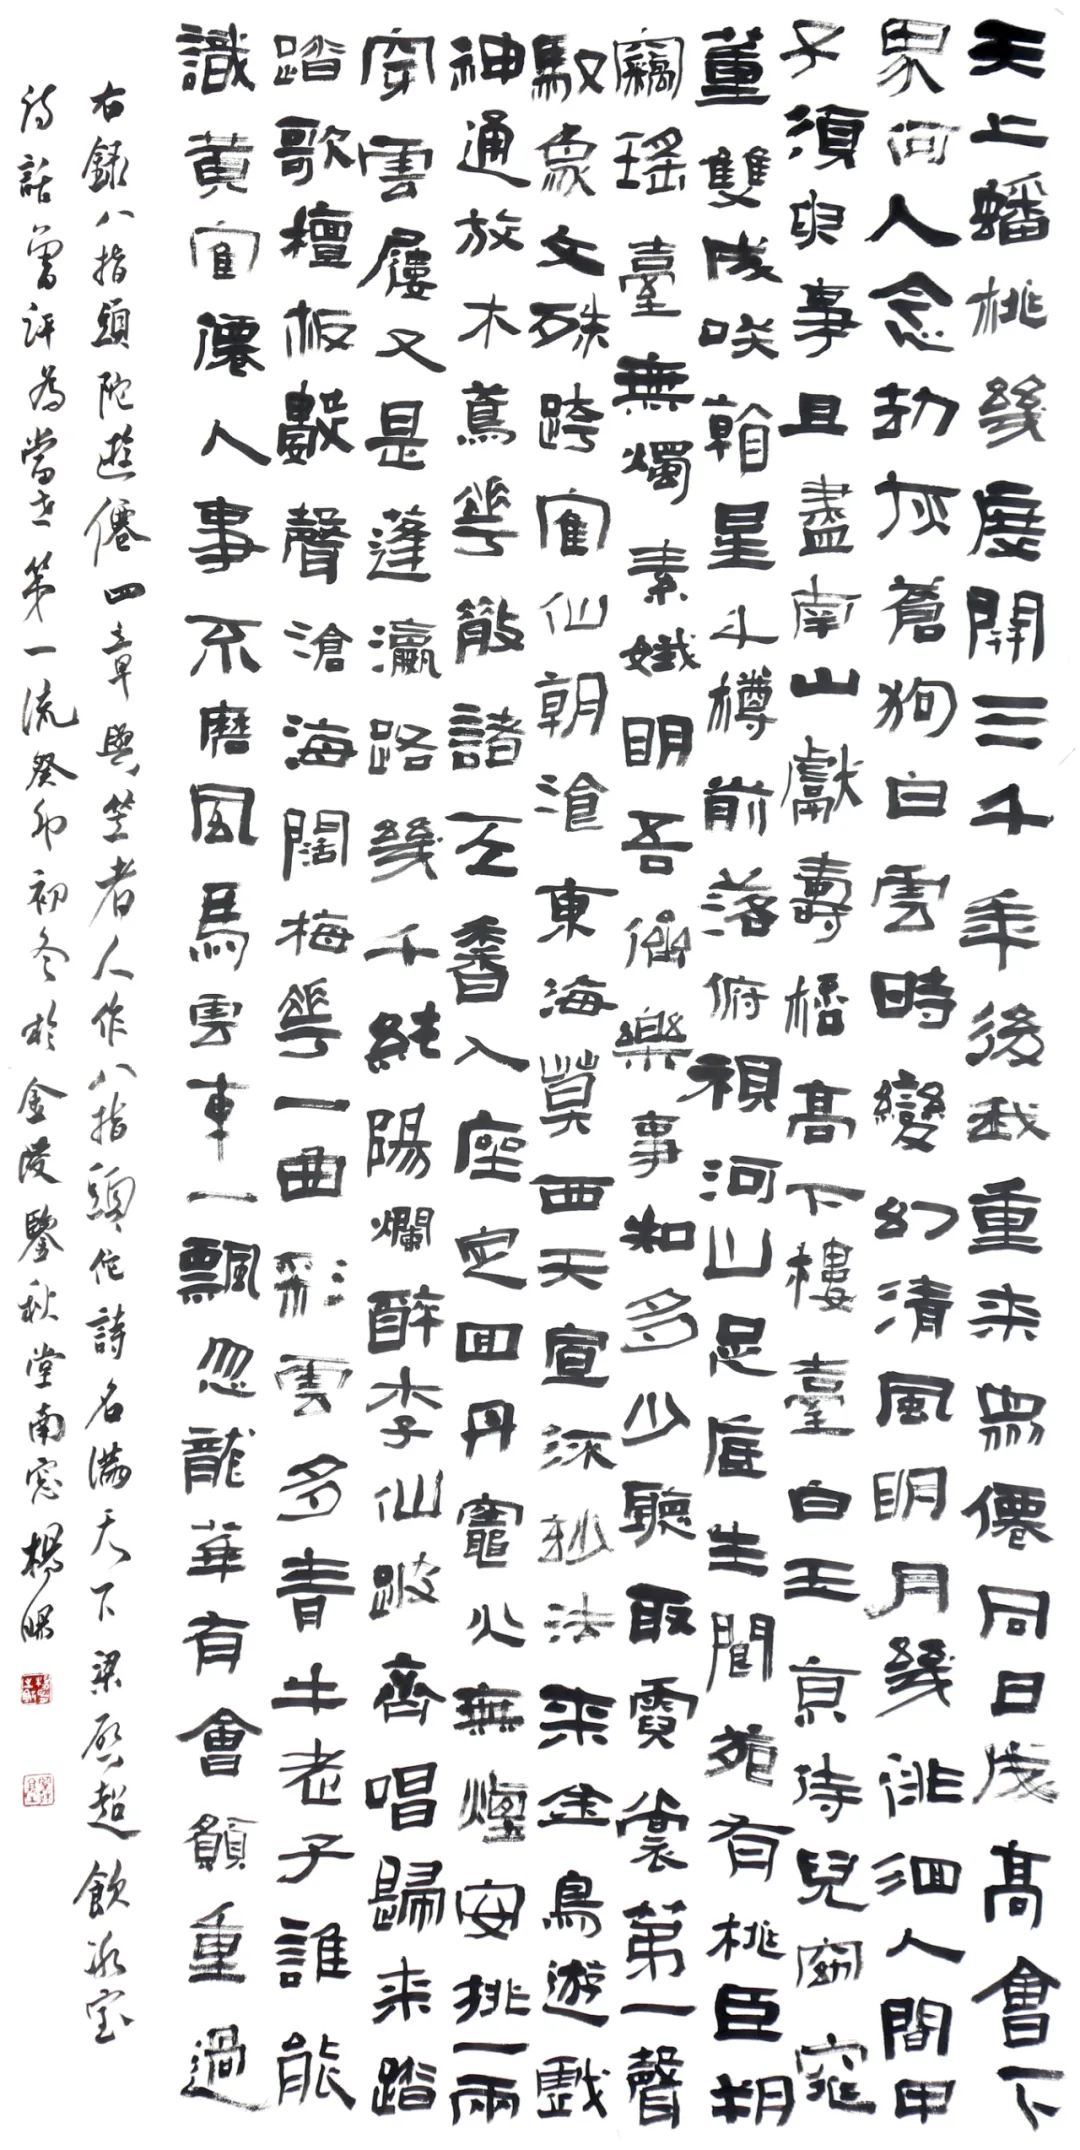 天上蟠桃幾度開三千年後我重来眾僊同日成高會下
界何人念劫灰蒼狗白雲時變幻清風明月幾徘徊人間甲
子須臾事且盡南山獻壽桮高下樓臺白玉京侍兒窈窕
董雙成唉翰星斗樽前落俯視河山足底生閬苑有桃臣朔
竊瑤臺無燭素娥明吾儕樂事知多少聽取霓裳第一聲
馭象文殊跨寉仙朝滄東海莫西天宣深妙法来金鳥遊戲
神通放木鳶花散諸天香入座定回丹竈火無煙安排一兩
穿雲屐又是蓬瀛路幾千純陽爛醉李仙跛齊唱歸来踏
踏歌檀板數聲滄海闊梅花一曲彩雲多青牛老子誰能
識黃寉僊人事不磨風馬雲車一飄忽龍華有會願重過
右錄八指頭陀遊僊四章與笠者人作八指頭佗詩名滿天下梁啟超飲冰室
詩話曾評為當世第一流癸卯初冬於金陵鑒秋堂南窓楊曙